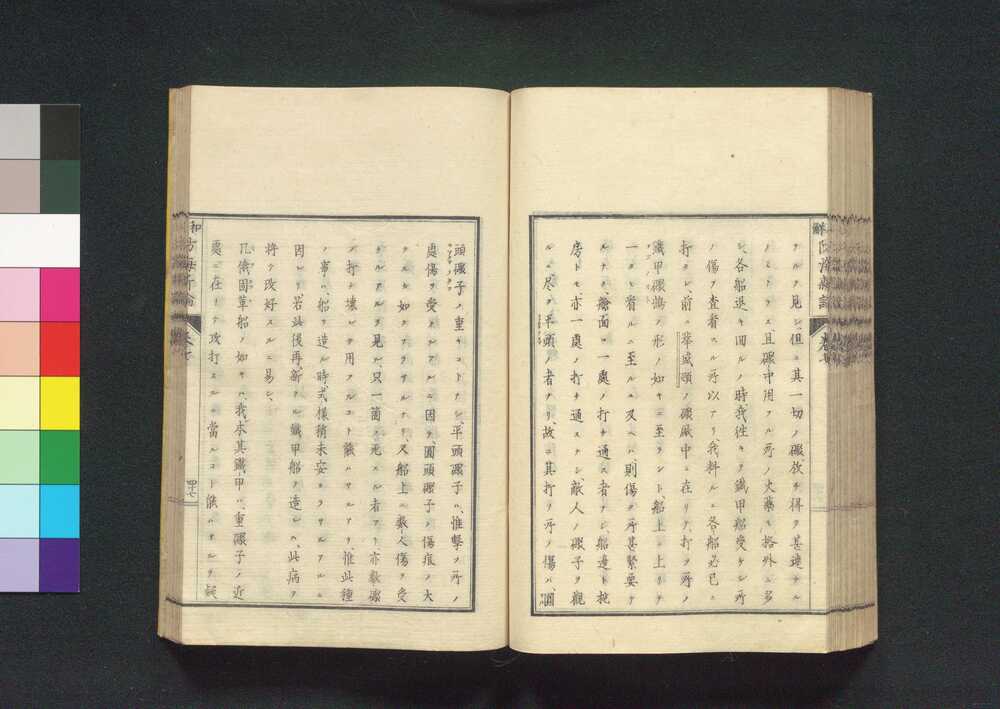 ヲルヲ見ル、但シ其一切ノ礟、放チ得ヲ甚速ナル
ノミナラス、且礟中用フル所ノ火藥モ格外ニ多
シ、各船退キ回ルノ時、我往キテ鐵甲船受ケシ所
ノ傷ヲ査看スル所以アリ、我料ルニ各船必已ニ
打タレ、前ノ華盛頓ノ礟砥中ニ在リテ、打ツ所ノ
鐵甲礟ノ形ノ如キニ至ラント、船上ニ上リテ
一タヒ看ルニ至ルニ及ヘハ、則傷ク所甚緊要ナ
ルナク、艙面ニ一處ノ打チ通ス者ナシ、船邊ト
房トモ亦一處ノ打チ通スナシ、敵人ノ礟子ヲ觀
ルニ、尽ク平頭ノ者ナリ、故ニ其打ツ所ノ傷ハ、圓
頭礟子ノ重キコトナシ、平頭礟子ハ、惟撃ツ所ノ
處傷ヲ受クルアルニ因テ、圓頭礟子ノ傷痕ノ大
クルカ如クナラサルナリ、又船上ニ數人傷ヲ受
クルアルヲ見ル、只一箇ノ死スル者アリ、亦數礟
ノ打チ壊レテ用フルコト能ハサルアリ、惟此種
ノ事ハ、船ヲ造ル時式樣稍未妥ナラサルアルニ
因レリ、若此後再新タニ鐵甲船ヲ造レハ、此病ヲ
將テ改好スルニ易シ、
兀儀固革船ノ如キハ、我本其鐵甲ハ、重礟子ノ近
處ニ在リテ攻打スルニ當ルコト能ハサルヲ疑
卷七
四十七